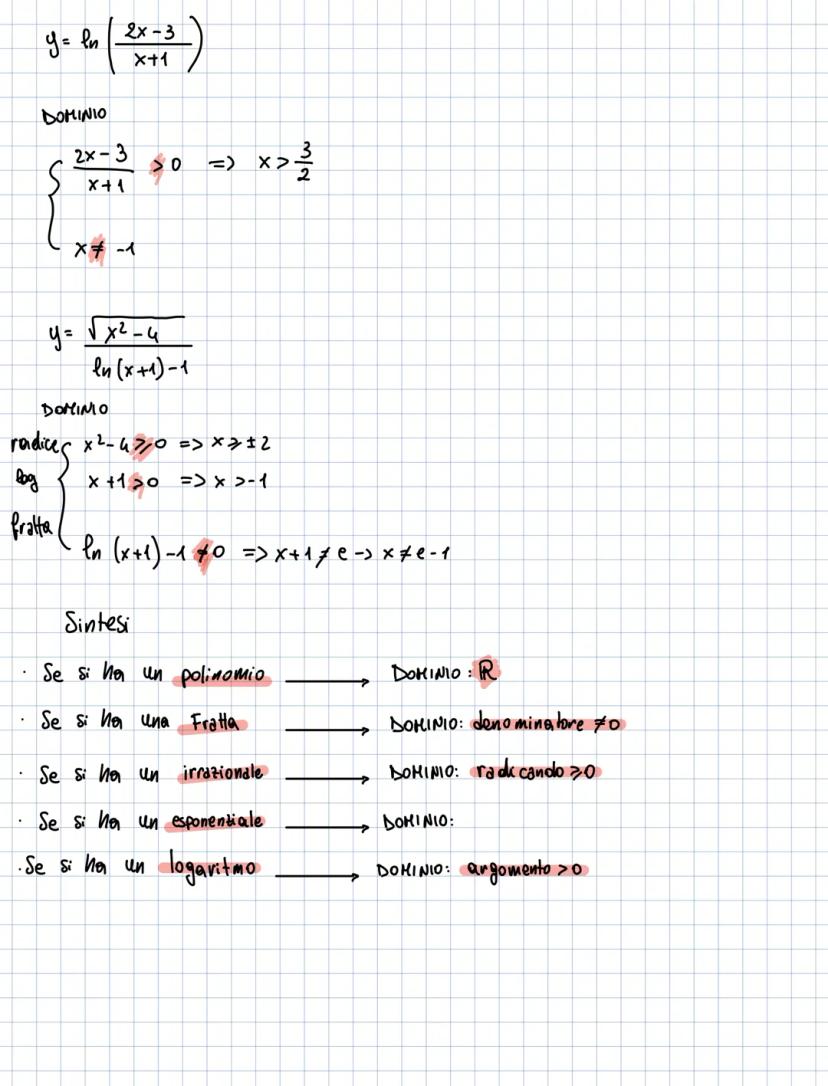 y = ln ( (2x-3)/(x+1) )
DOMINIO
{ (2x-3)/(x+1) > 0 => x > 3/2
x ≠ -1
y = √(x²-4) / (ln (x+1) -1)
DOMINIO
radice x²-4 ⩾ 0 => x ⩾ ±2
log x+1 > 0 => x > -1
fratta ln (x+1) -1 ≠ 0 => x+1 ≠ e -> x ≠ e-1
Sintesi
· Se si ha un polinomio ⟶ DOMINIO: ℝ
· Se si ha una Fratta ⟶ DOMINIO: denominatore ≠ 0
· Se si ha un irrazionale ⟶ DOMINIO: radicando ⩾ 0
· Se si ha un esponenziale ⟶ DOMINIO:
· Se si ha un logaritmo ⟶ DOMINIO: argomento > 0